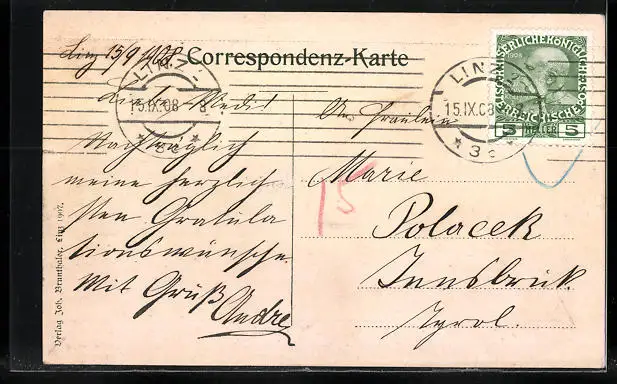 Linz 15/9 1908.
Correspondenz-Karte
LINZ
15.IX.08
3
LINZ
15.IX.08
3
KAISERLICHE KÖNIGLICHE
1908
ÖSTERREICHISCHE POST
5 HELLER 5
Nachträglich
meine herzlich
sten Gratula
tionswünsche.
Mit Gruß
Andre
An Fräulein
Marie
Polacek
Innsbruk.
Tyrol.
15
Verlag Joh. Brunthaler, Linz 1907.